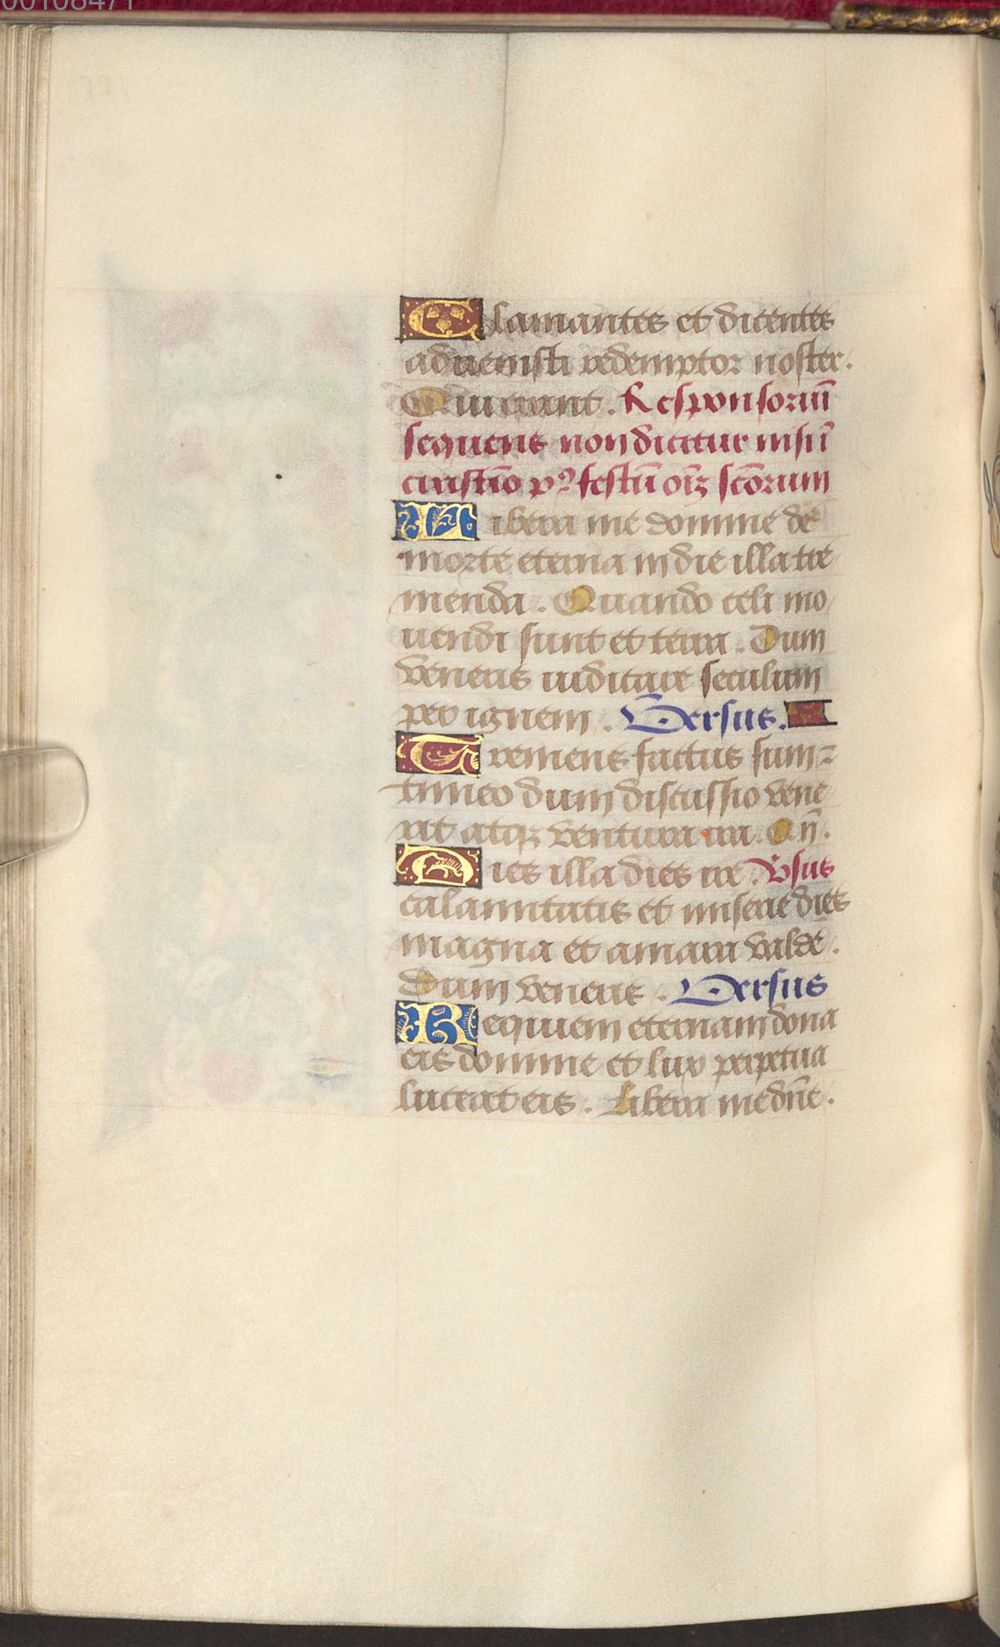 00108471
Clamantes et dicentes
aduenisti redemptor noster.
Qui erant. Responsoriū
sequens non dicitur nisi ī
crastīo p⁹ festū oīꝫ sctōrum
Libera me domine de
morte eterna in die illa tre
menda. Quando celi mo
uendi sunt et terra. Dum
veneris iudicare seculum
per ignem. Versus.
Tremens factus sum ⁊
timeo dum discussio vene
rit atqꝫ ventura ira. Qn̄.
Dies illa dies ire. Vsus
calamitatis et miserie dies
magna et amara valde.
Dum veneris. Versus
Requiem eternam dona
eis domine et lux perpetua
luceat eis. Libera me dn̄e.